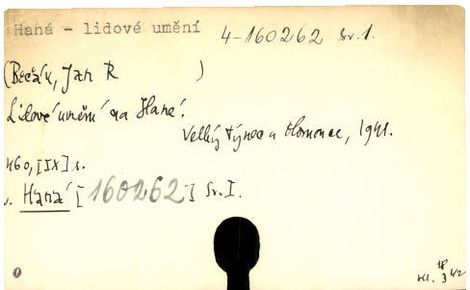 Haná - lidové umění 4-160262 Sv. 1.
(Bečák, Jan R )
Lidové umění na Hané.
Velký Týnec u Olomouce, 1941.
460, [IX] s.
Haná [160262] Sv. I.
18
3 42